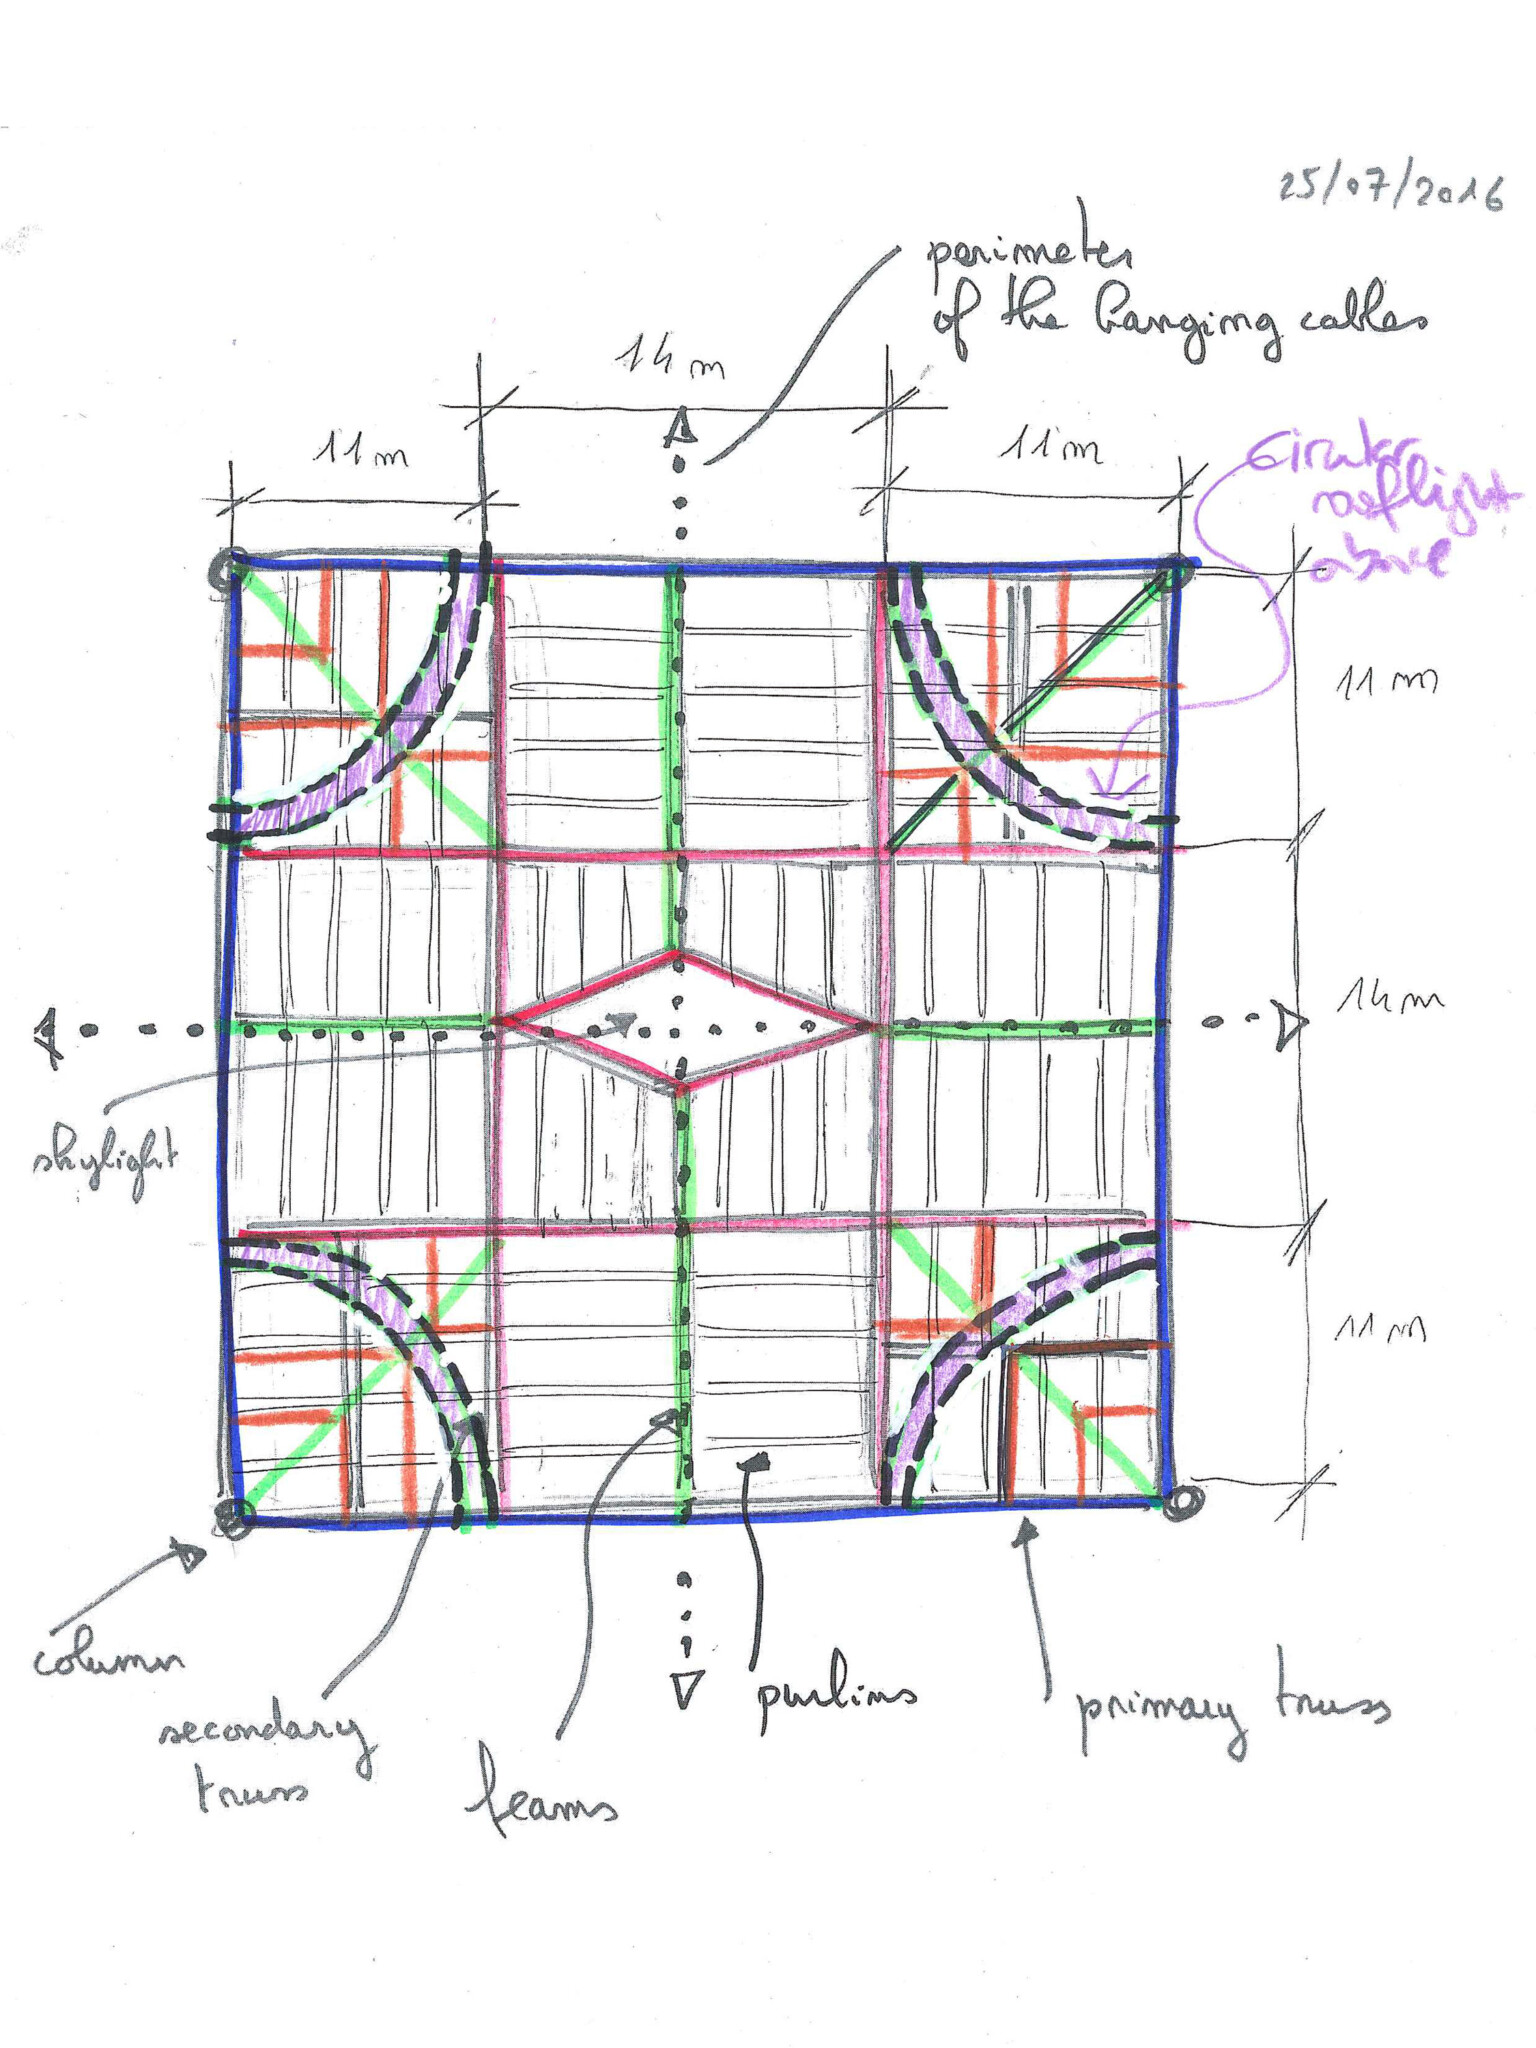 25/07/2016
perimeter
of the hanging cables
14 m
11 m
11 m
Circular
rooflight
above
11 m
14 m
skylight
11 m
column
purlins
primary truss
secondary
truss
beams